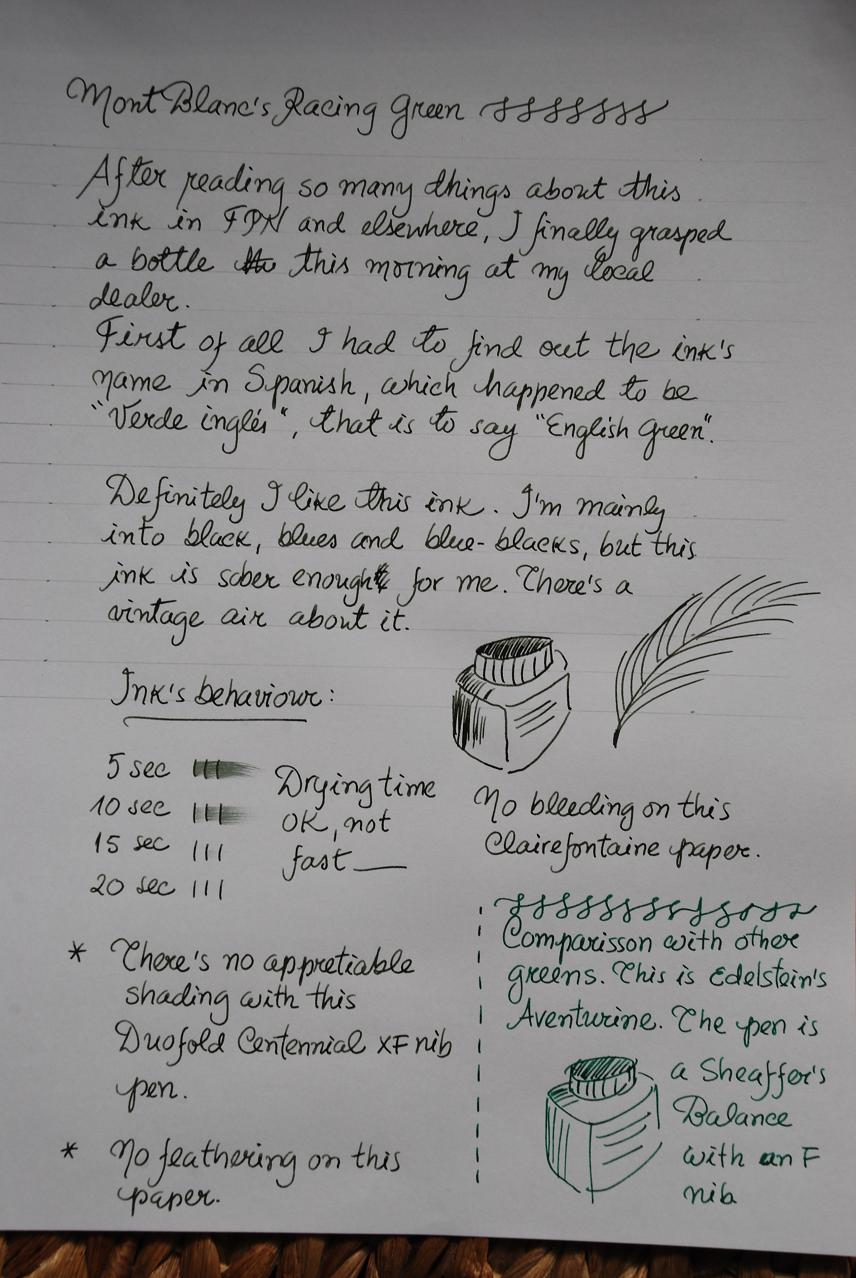 Mont Blanc's Racing Green
After reading so many things about this
ink in FPN and elsewhere, I finally grasped
a bottle this morning at my local
dealer.
First of all I had to find out the ink's
name in Spanish, which happened to be
"Verde inglés", that is to say "English Green".
Definitely I like this ink. I'm mainly
into black, blues and blue-blacks, but this
ink is sober enough for me. There's a
vintage air about it.
Ink's behaviour:
5 sec
10 sec
15 sec
20 sec
Drying time
OK, not
fast
No bleeding on this
Clairefontaine paper.
* There's no appretiable
shading with this
Duofold Centennial XF nib
pen.
* No feathering on this
paper.
Comparisson with other
greens. This is Edelstein's
Aventurine. The pen is
a Sheaffer's
Balance
with an F
nib